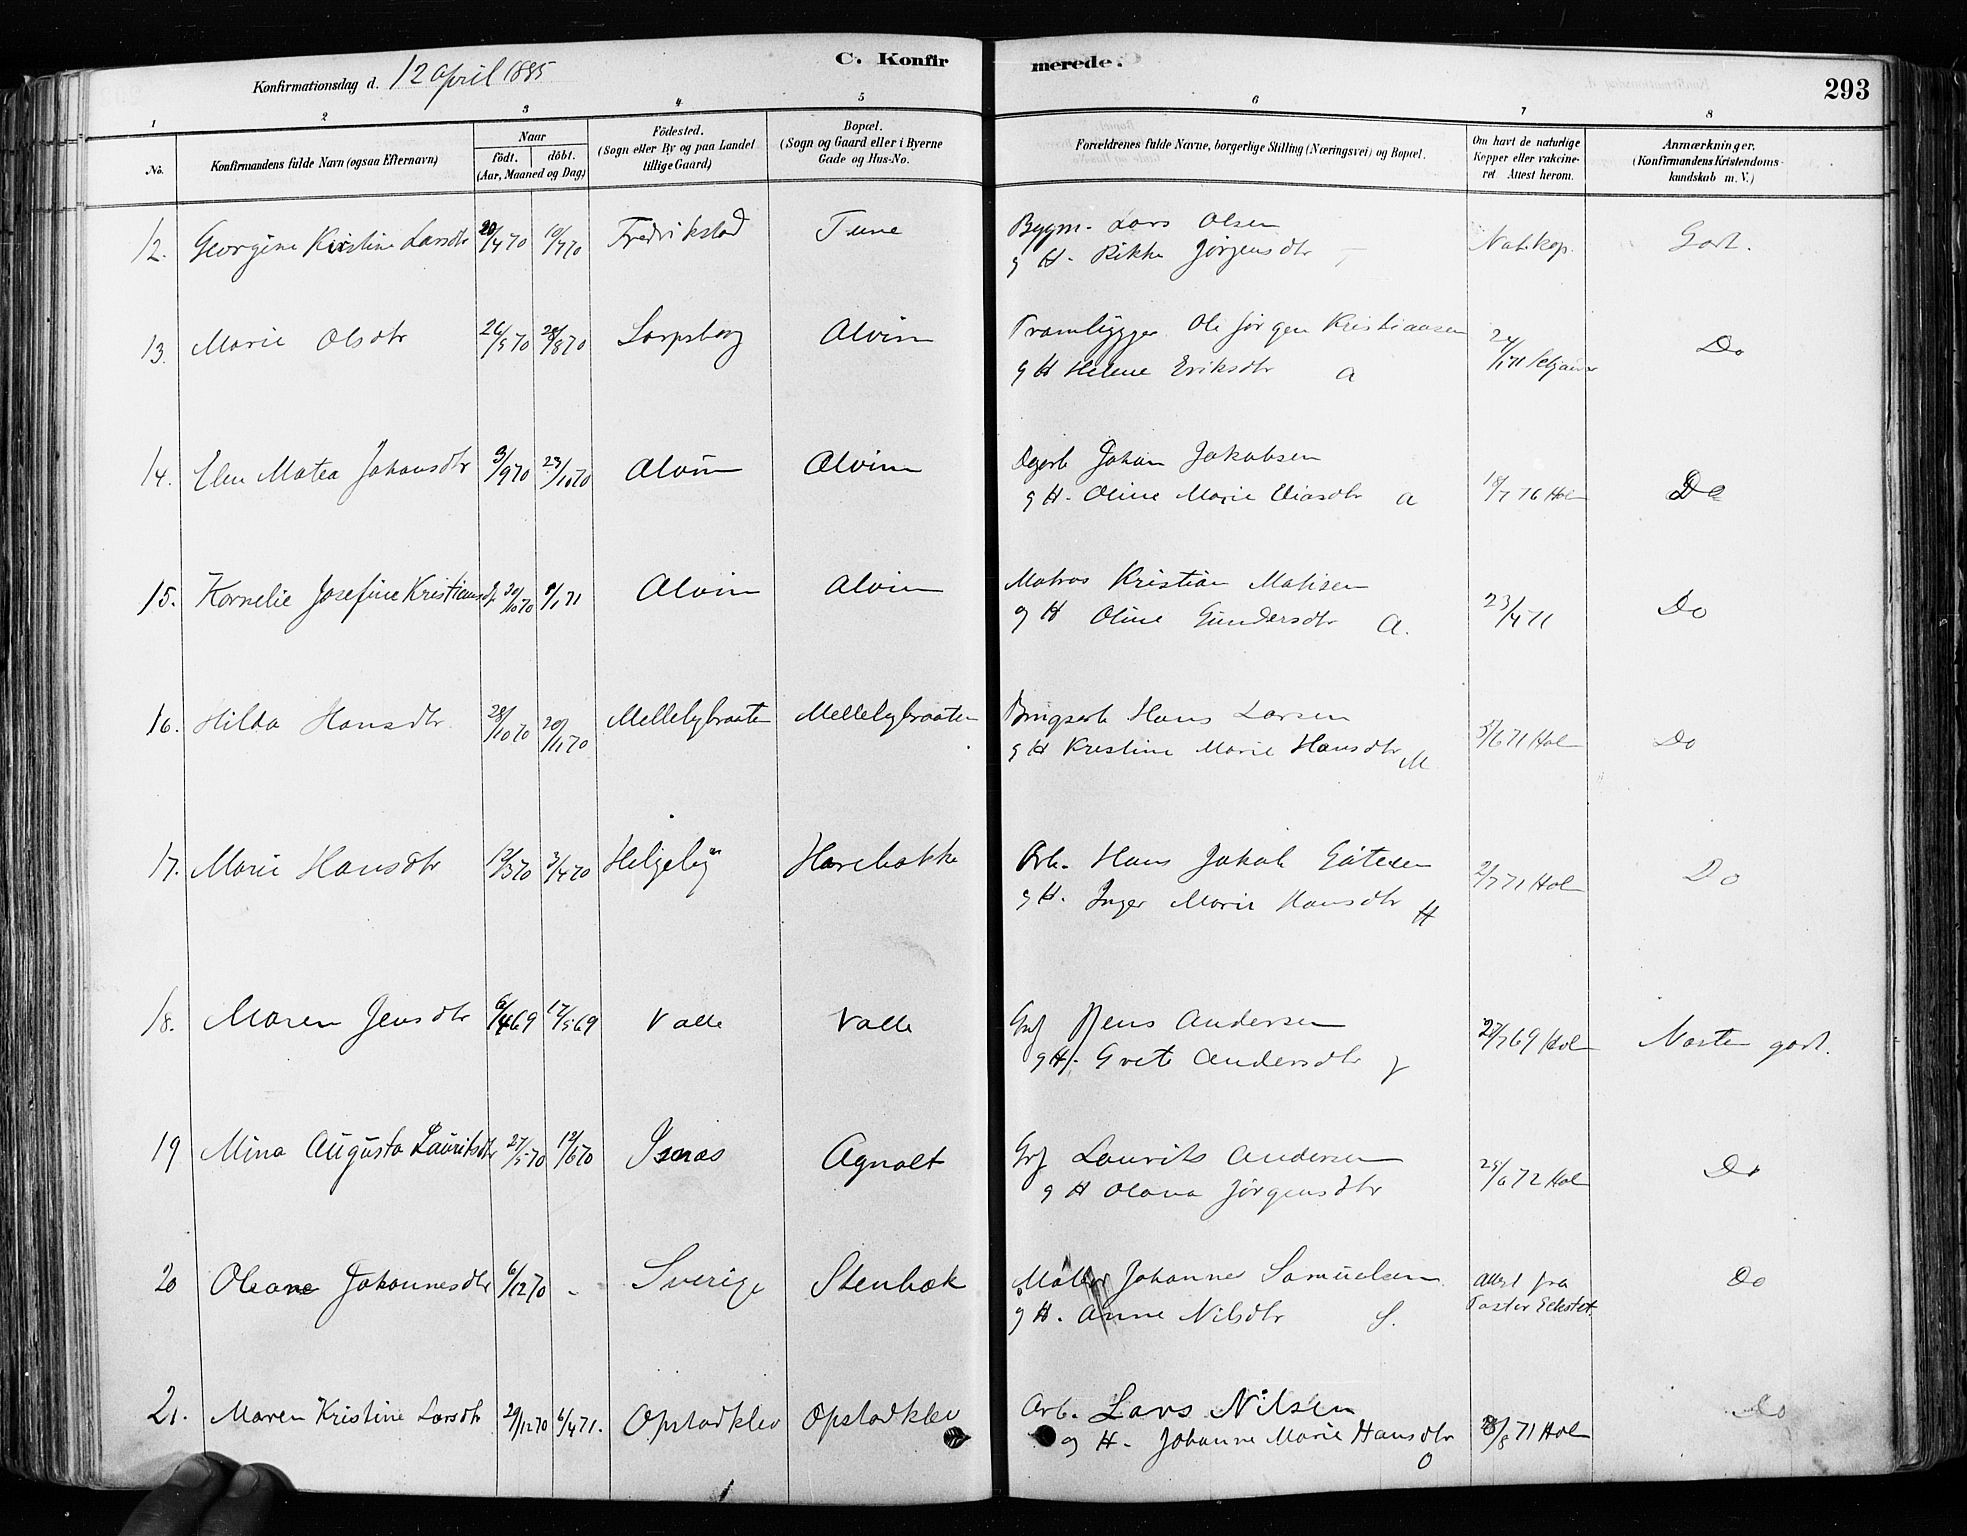 C. Konfirmerede.
293
Konfirmationsdag d. 12 April 1885
1 2 3 4 5 6 7 8
No. Konfirmandens fulde Navn (ogsaa Efternavn) Naar födt. döbt. (Aar, Maaned og Dag) Födested. (Sogn eller By og paa Landet tillige Gaard) Bopæl. (Sogn og Gaard eller i Byerne Gade og Hus-No. Forældrenes fulde Navne, borgerlige Stilling (Næringsvei) og Bopæl. Om havt de naturlige Kopper eller vakcineret Attest herom. Anmærkninger. (Konfirmandens Kristendomskundskab m. V.)
12. Georgine Kristine Larsdtr 20/4 70 10/7 70 Fredrikstad Tune Bygm. Lars Olsen Nat. kop. Godt.
g H. Rikke Jörgensdtr
13. Marie Olsdtr 26/5 70 28/8 70 Sarpsborg Alvim Ole Jörgen Kristiansen Do
g H Helene Eriksdtr a
14. Elen Matea Johansdtr 9/9 70 23/10 70 Alvim Alvim Johan Jakobsen Do
g H. Oline Marie a
15. Kornelie Josefine Kristiansd. 30/10 70 8/1 71 Alvim Alvim Matros Kristian Matisen 23/4 71 Do
g H Oline Gundersdtr A.
16. Hilda Hansdtr 28/10 70 20/11 70 Mellebybraaten Mellebybraaten Hans Larsen 5/6 71 Hol Do
g H Kristine Marie Hansdtr M
17. Marie Hansdtr 12/3 70 3/4 70 Helgeby Harebakke Arb. Hans Jakob 2/7 71 Hol Do
g H. Inger Marie Hansdtr H
18. Maren Jensdtr 6/4 69 17/5 69 Valle Valle Jens Andersen 28/7 69 Hol Næsten godt.
g H. Grete Andersdtr
19 Mina Augusta Lauritsdtr 27/5 70 12/6 70 Isnæs Agnalt Laurits Andersen 25/6 72 Hol Do
g H Olava Jörgensdtr
20 Oleane Johannesdtr 6/12 70 - Sverige Stenbæk Möller Johannes Samuelsen Attest fra Do
g H. Anne Nilsdtr S. Pastor
21. Maren Kristine Larsdtr 29/12 70 6/4 71. Opstadklev Opstadklev Arb. Lars Nilsen 28/8 71 Hol Do
og H. Johanne Marie Hansdtr O